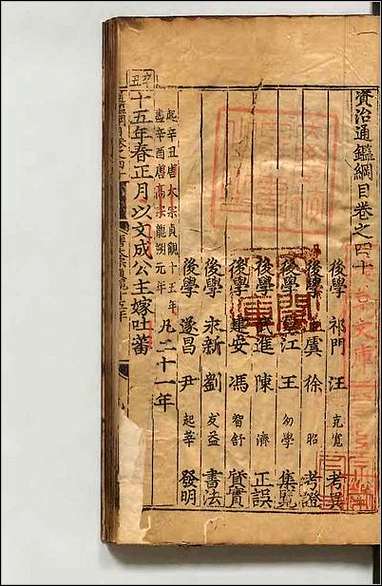 資治通鑑綱目卷之四十
後學 祁門 汪 克寬 考異
後學 上虞 徐 昭 考證
後學 望江 王 幼學 集覽
後學 武進 陳 濟 正誤
後學 建安 馮 智舒 質實
後學 永新 劉 友益 書法
後學 遂昌 尹 起莘 發明
起辛丑唐太宗貞觀十五年
盡辛酉唐高宗龍朔元年 凡二十一年
辛丑 十五年春正月以文成公主嫁吐蕃